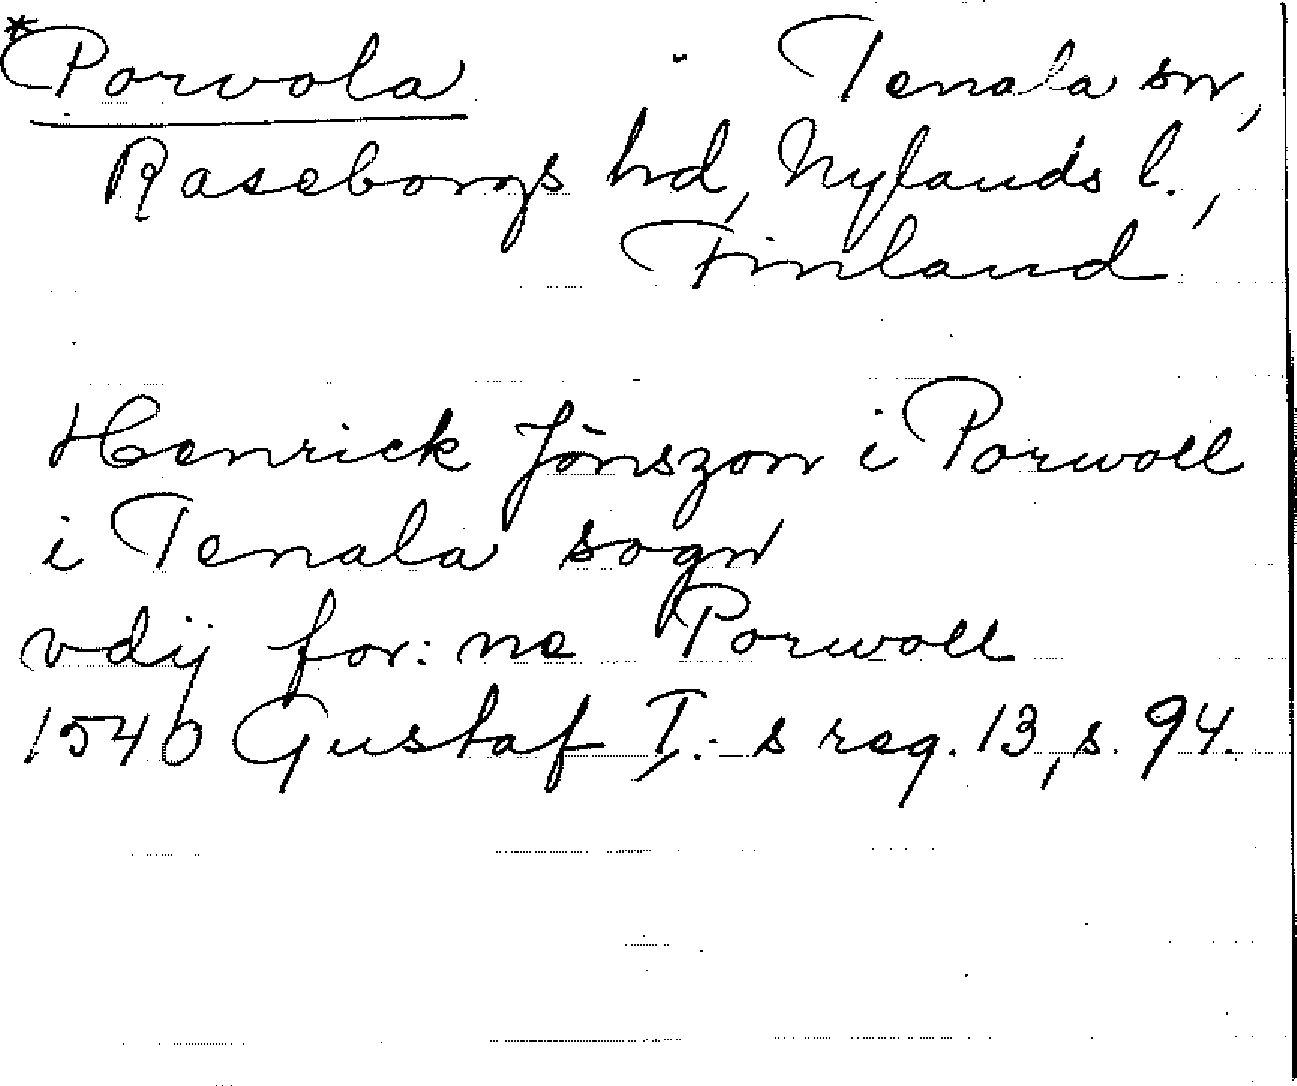 *Porvola Tenala sn,
Raseborgs hd, Nylands l.,
Finland
Henrick Jönszon i Porwoll
i Tenala sogn
vdij for:ne Porwoll
1540 Gustaf I:s reg. 13, s. 94.